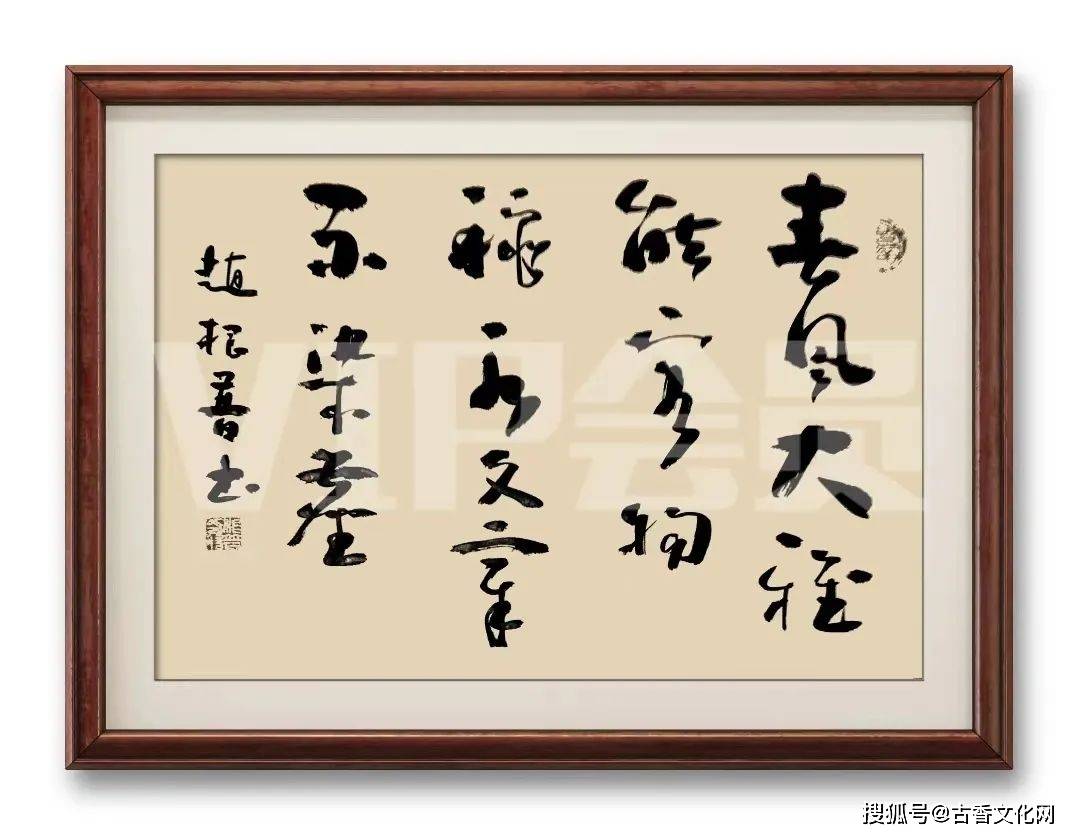 春风大雅
能容物
秋水文章
不染塵
趙根普书
VIP会员
搜狐号@古香文化网